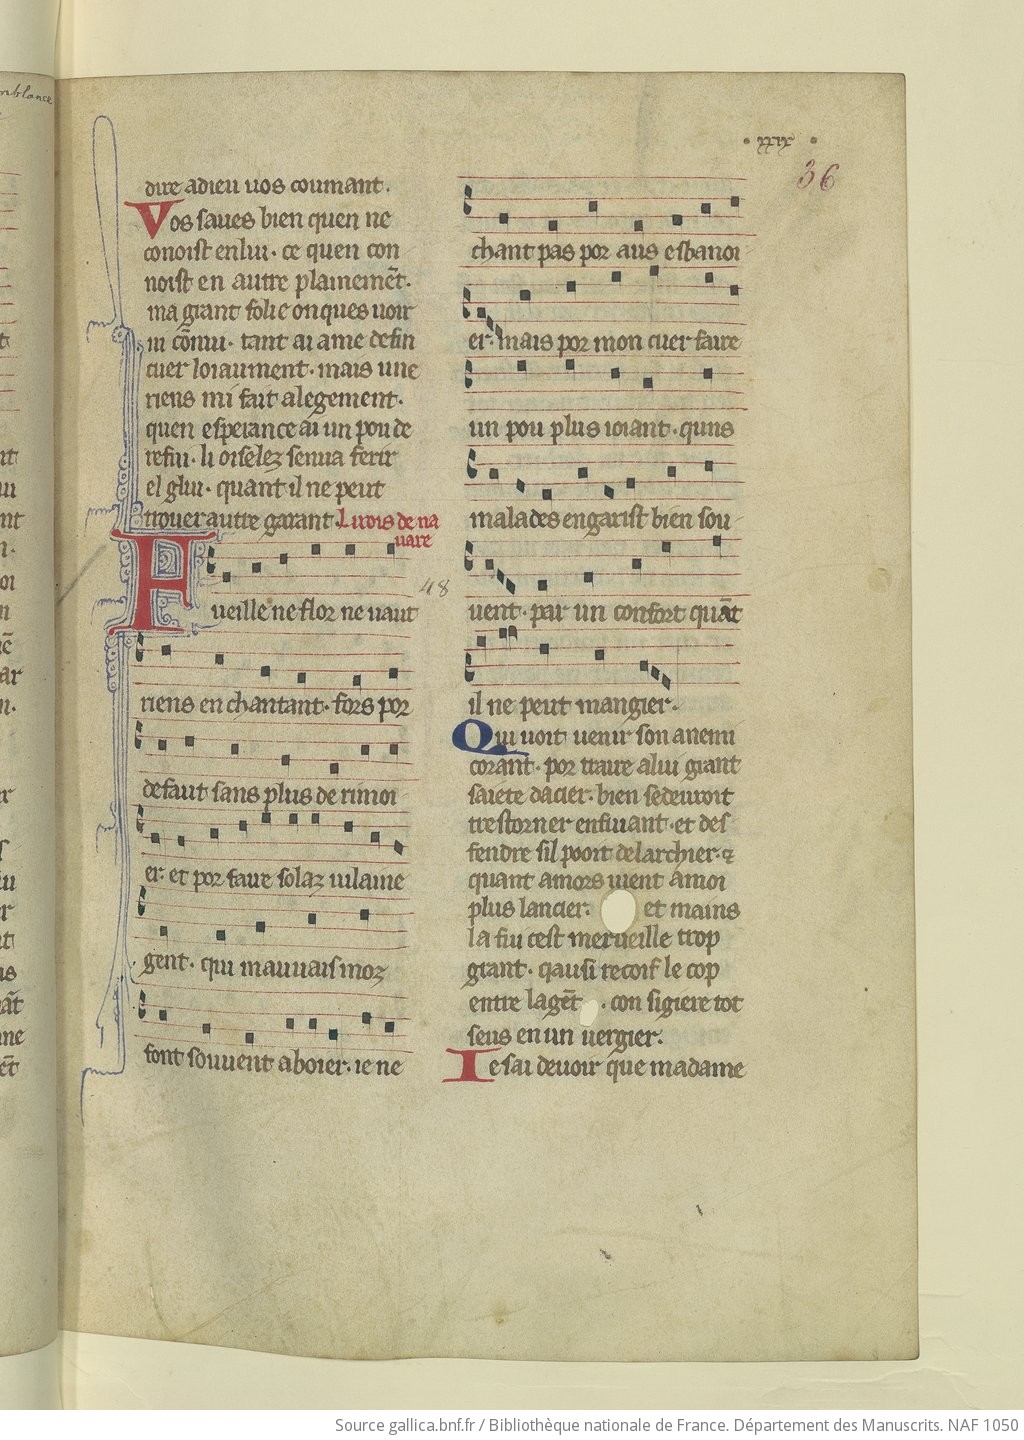 · xxix ·
36
dire adieu uos coumant.
Vos saues bien quen ne
conoist enlui· ce quen con
noist en autre plainemēt·
ma grant folie onques uoir
tant ai ame defin
cuer loiaument· mais une
riens mi fait alegement·
quen esperance ai un pou de
refui· li oiselez senua ferir
el glui· quant il ne peut
trouer autre garant· Li rois de na
uare
Fueille ne flor ne uaut
48
riens en chantant· fors por
defaut sans plus de rimoi
er· et por faire solaz uilaine
gent· qui mauuais moz
font souuent aboier· ie ne
chant pas por aus esbanoi
er· mais por mon cuer faire
un pou plus ioiant· quns
malades engarist bien sou
uent· par un confort quāt
il ne peut mangier·
Qui uoit uenir son anemi
corant· por traire a lui grant
saiete dacier· bien sedeuroit
trestorner enfuiant· et des
fendre sil pooit delarchier· ⁊
quant amors uient amoi
plus lancier· et mains
la fui cest merueille trop
grant· qausi recoif le cop
entre lagēt · con sigiere tot
seus en un uergier·
Ie sai deuoir que madame
Source gallica.bnf.fr / Bibliothèque nationale de France. Département des Manuscrits. NAF 1050